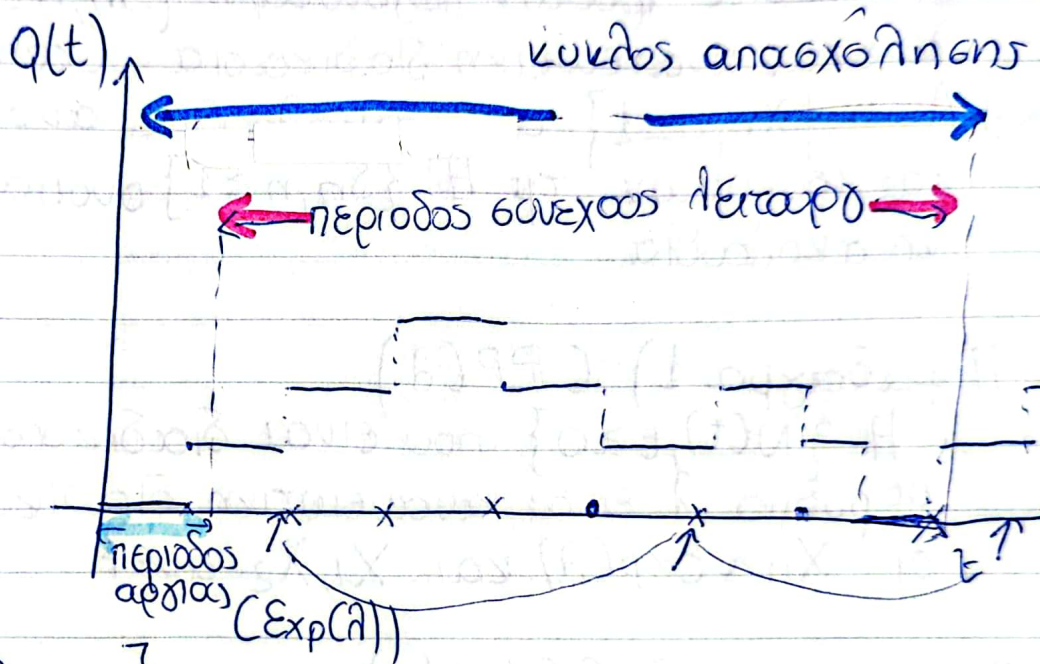 Q(t)
κύκλος απασχόλησης
περιοδος συνεχοος λειτουργ
περιοδος
αργιας
(Exp(λ))
t